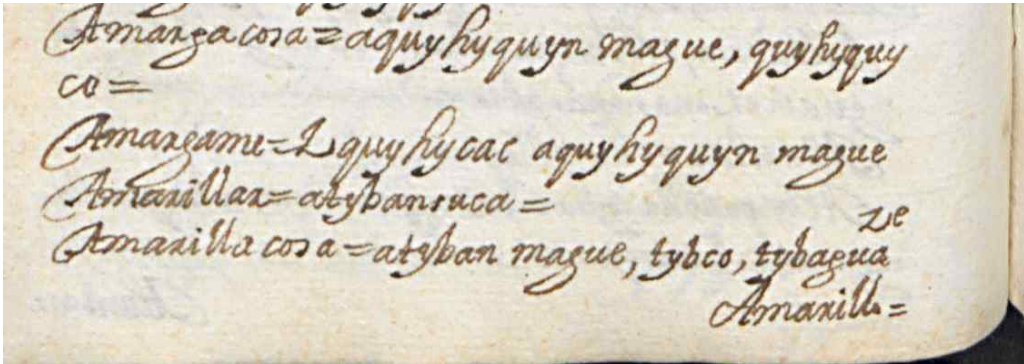 Amarga cosa = aquyhyquyn mague, quyhyquy
co =
Amargame = Z quyhycac aquyhyquyn mague
Amarillar = atybansuca =
ze
Amarilla cosa = atyban mague, tybco, tybagua
Amarill. =